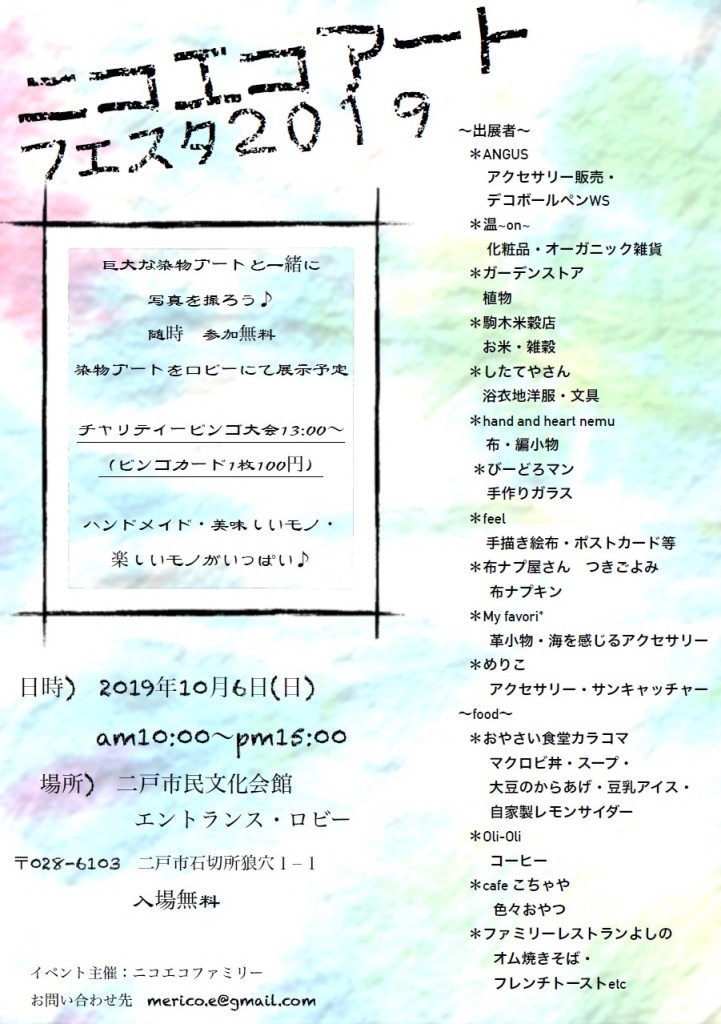 ニコエコアート
フェスタ2019
巨大な染物アートと一緒に
写真を撮ろう♪
随時　参加無料
染物アートをロビーにて展示予定
チャリティービンゴ大会13:00〜
（ビンゴカード1枚100円）
ハンドメイド・美味しいモノ・
楽しいモノがいっぱい♪
日時)　2019年10月6日(日)
am10:00〜pm15:00
場所)　二戸市民文化会館
エントランス・ロビー
〒028-6103　二戸市石切所狼穴１−１
入場無料
イベント主催：ニコエコファミリー
お問い合わせ先　merico.e@gmail.com
〜出展者〜
＊ANGUS
アクセサリー販売・
デコボールペンWS
＊温~on~
化粧品・オーガニック雑貨
＊ガーデンストア
植物
＊駒木米穀店
お米・雑穀
＊したてやさん
浴衣地洋服・文具
＊hand and heart nemu
布・編小物
＊びーどろマン
手作りガラス
＊feel
手描き絵布・ポストカード等
＊布ナプ屋さん　つきごよみ
布ナプキン
＊My favori*
革小物・海を感じるアクセサリー
＊めりこ
アクセサリー・サンキャッチャー
〜food〜
＊おやさい食堂カラコマ
マクロビ丼・スープ・
大豆のからあげ・豆乳アイス・
自家製レモンサイダー
＊Oli-Oli
コーヒー
＊cafe こちゃや
色々おやつ
＊ファミリーレストランよしの
オム焼きそば・
フレンチトーストetc